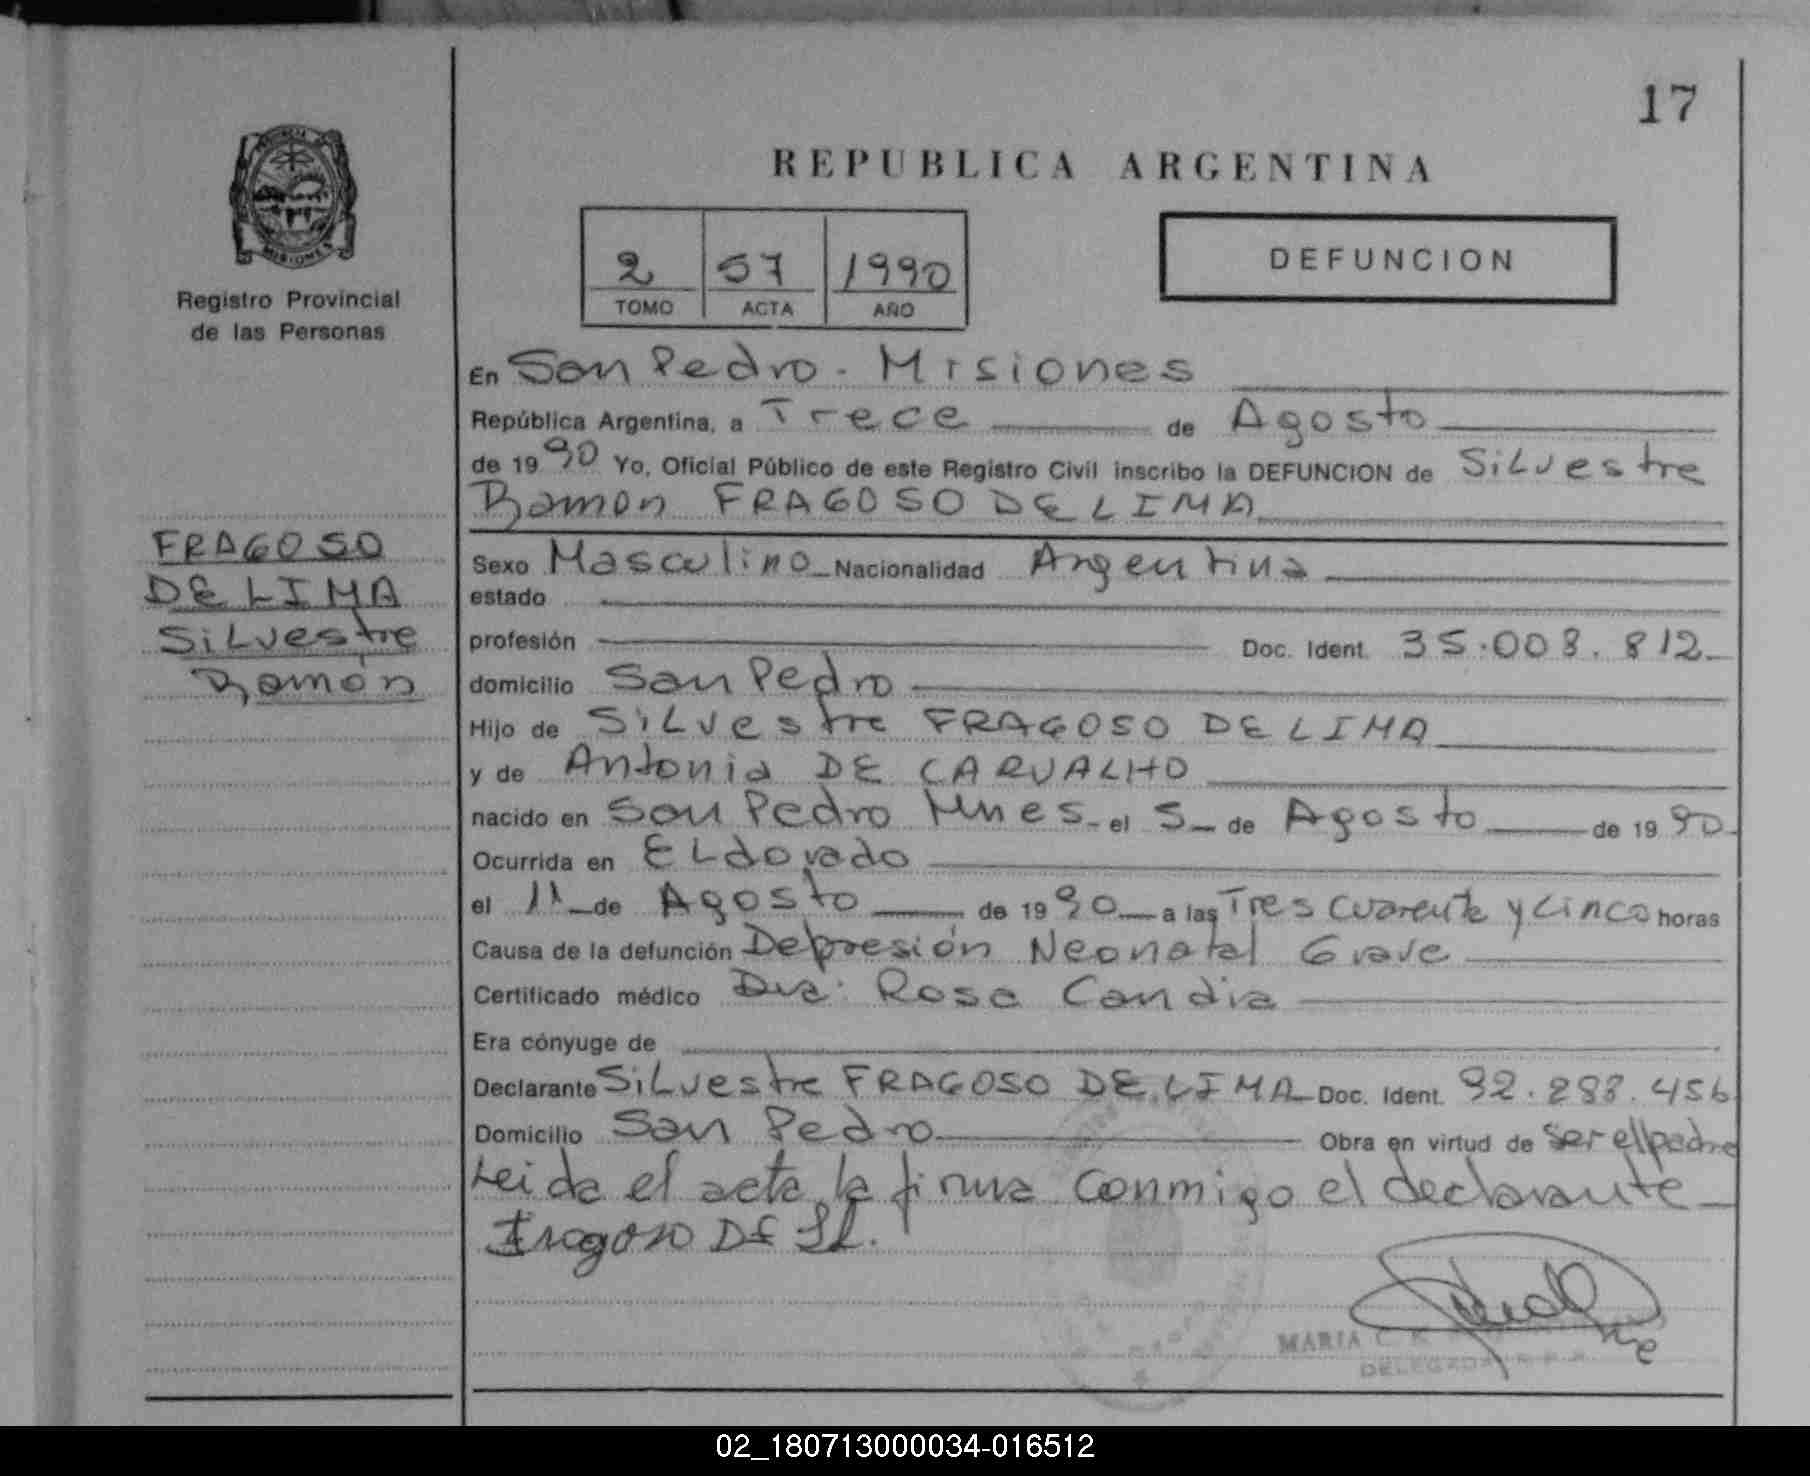 17
REPUBLICA ARGENTINA
MISIONES
Registro Provincial
de las Personas
2 57 1990
TOMO ACTA AÑO
DEFUNCION
En San Pedro - Misiones
República Argentina, a Trece de Agosto
de 1990 Yo, Oficial Público de este Registro Civil inscribo la DEFUNCION de Silvestre
Ramon FRAGOSO DE LIMA
FRAGOSO
DE LIMA
Silvestre
Ramón
Sexo Masculino Nacionalidad Argentina
estado
profesión Doc. Ident. 35.008.812
domicilio San Pedro
Hijo de Silvestre FRAGOSO DE LIMA
y de Antonia DE CARVALHO
nacido en San Pedro Mnes el 5 de Agosto de 1990
Ocurrida en Eldorado
el 11 de Agosto de 1990 a las Tres cuarenta y cinco horas
Causa de la defunción Depresión Neonatal Grave
Certificado médico Dra: Rosa Candia
Era cónyuge de
Declarante Silvestre FRAGOSO DE LIMA Doc. Ident. 92.288.456
Domicilio San Pedro Obra en virtud de ser el padre
Leida el acta la firma conmigo el declarante
Fragoso DE
MARIA C.
DELEGADA R.P.P.
02_180713000034-016512